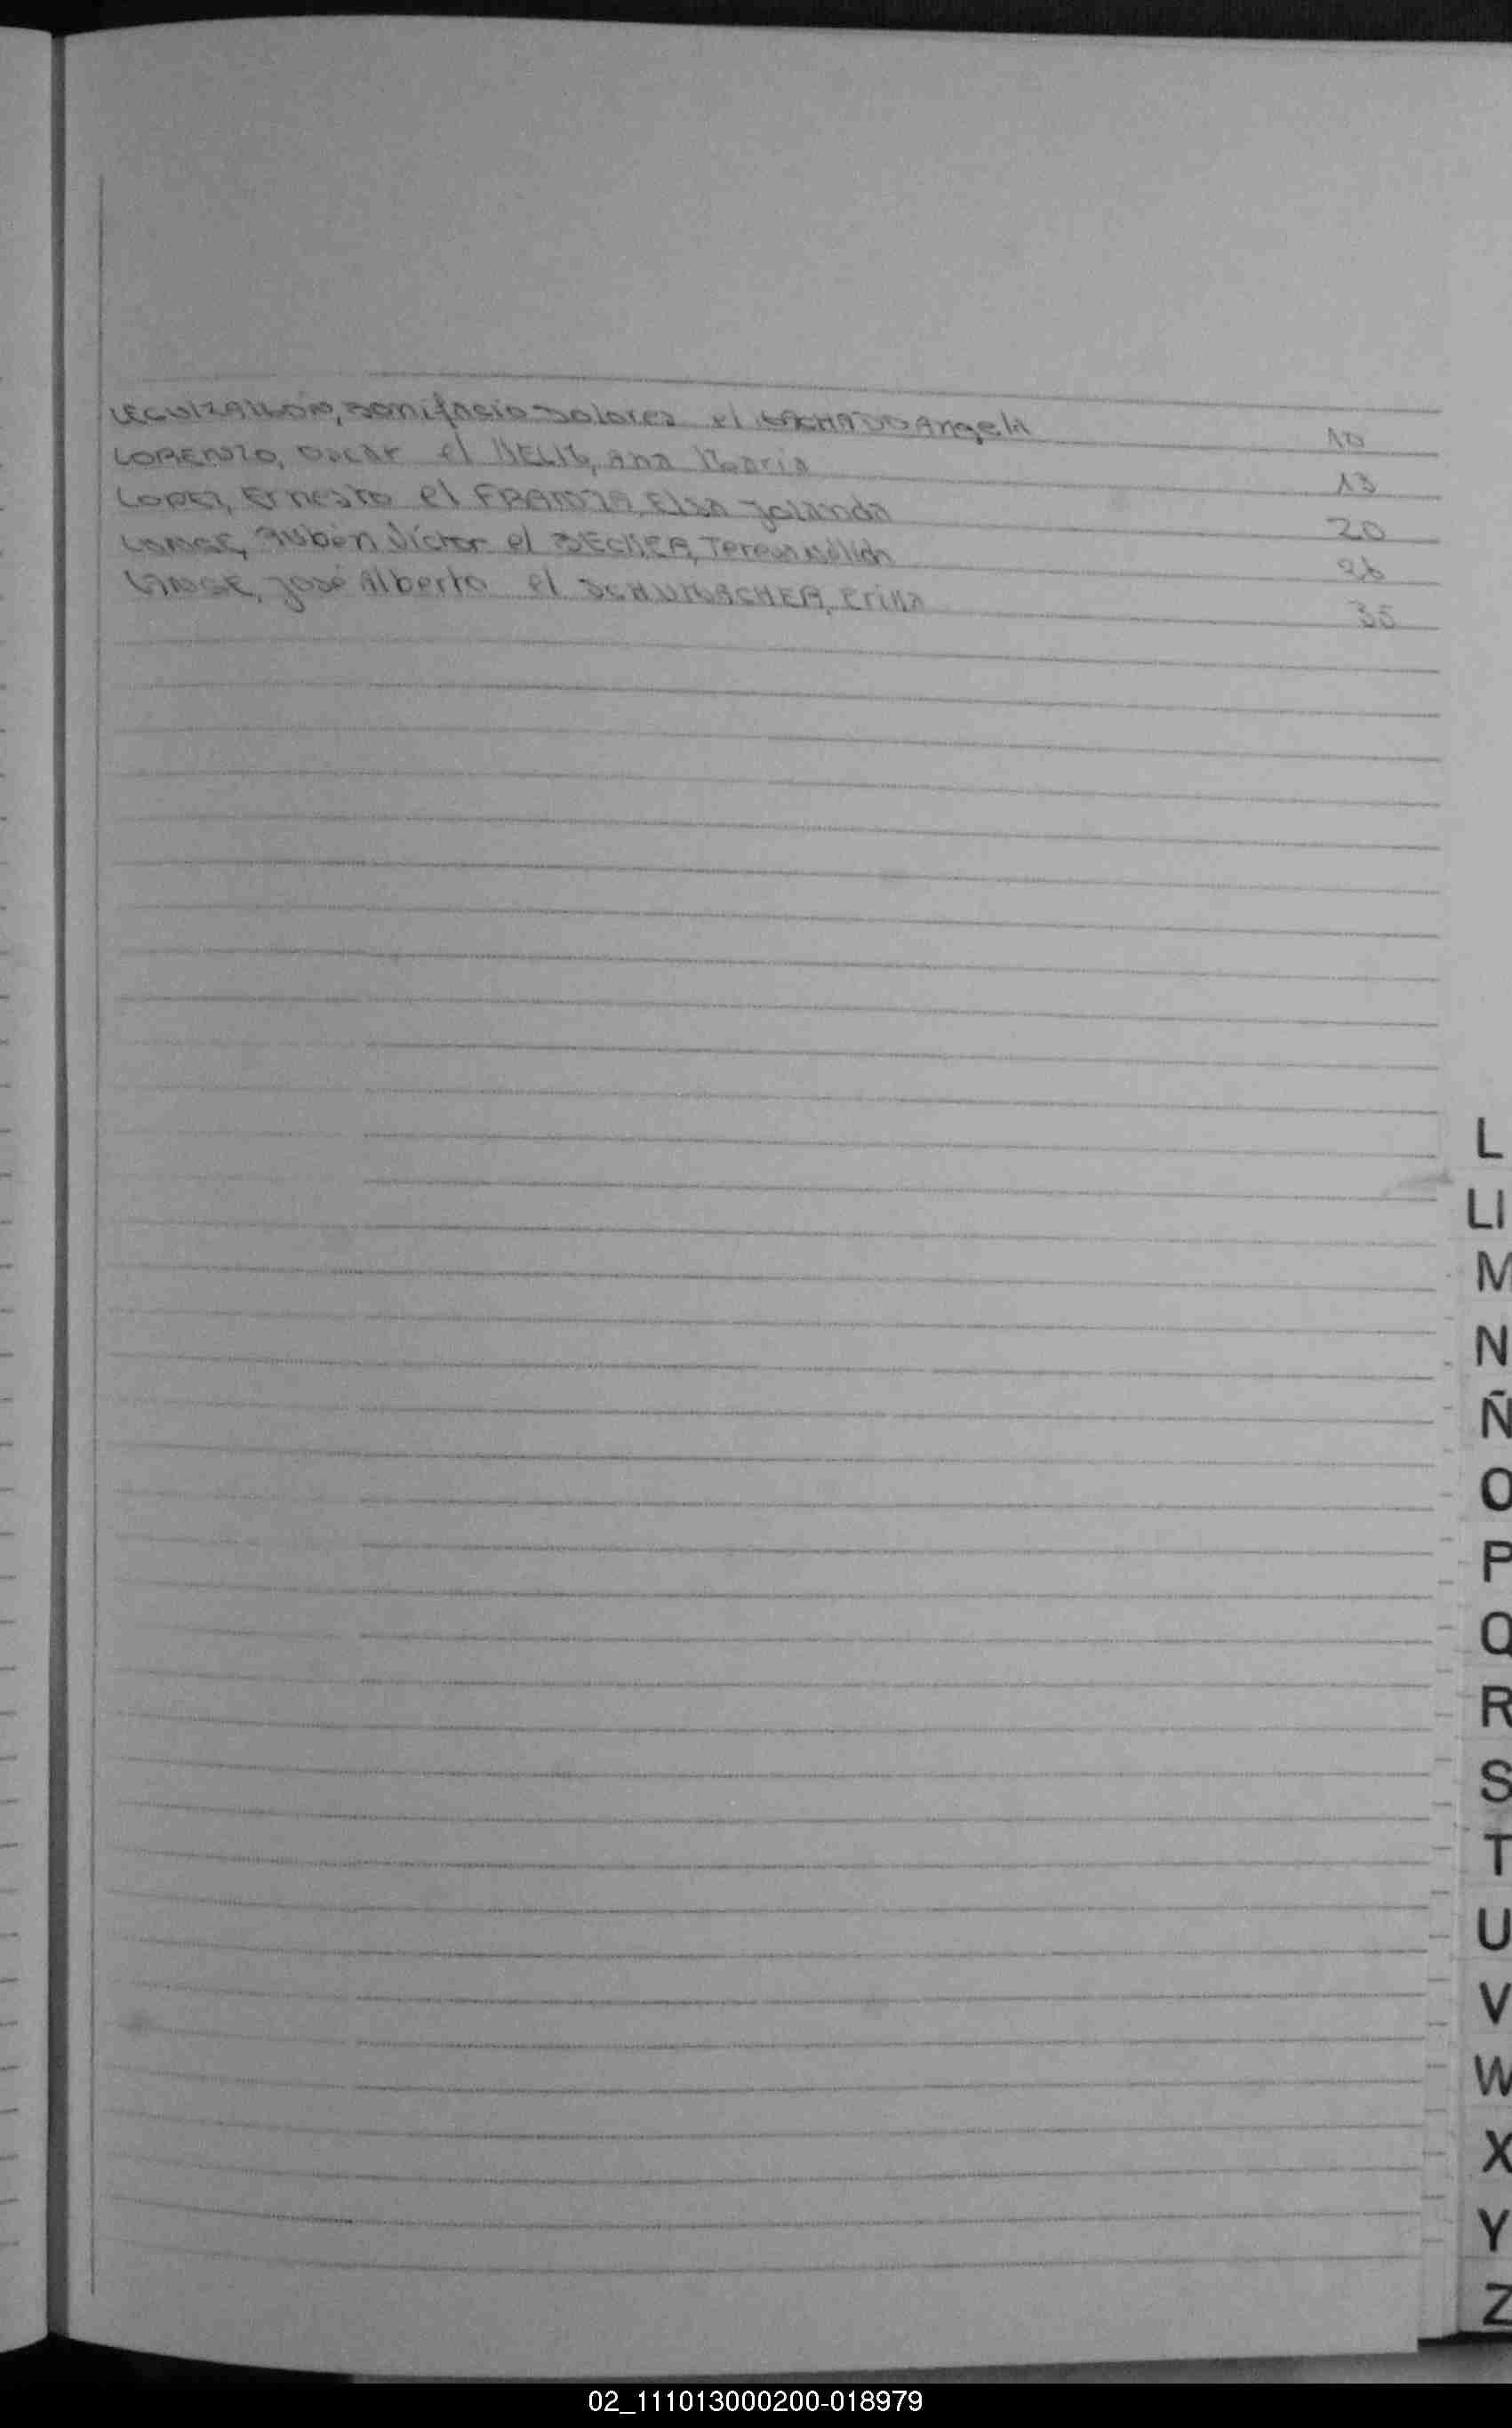 LEGUIZAMÓN, Bonifacio Dolores c/ MACHADO Angela 10
LORENZO, Oscar c/ Ana María 13
LOPEZ, Ernesto c/ Elsa Yolanda 20
Rubén Víctor c/ BECKER, Teresa 26
José Alberto c/ SCHUMACHER, Erika 35
L
Ll
M
N
Ñ
O
P
Q
R
S
T
U
V
W
X
Y
Z
02_111013000200-018979